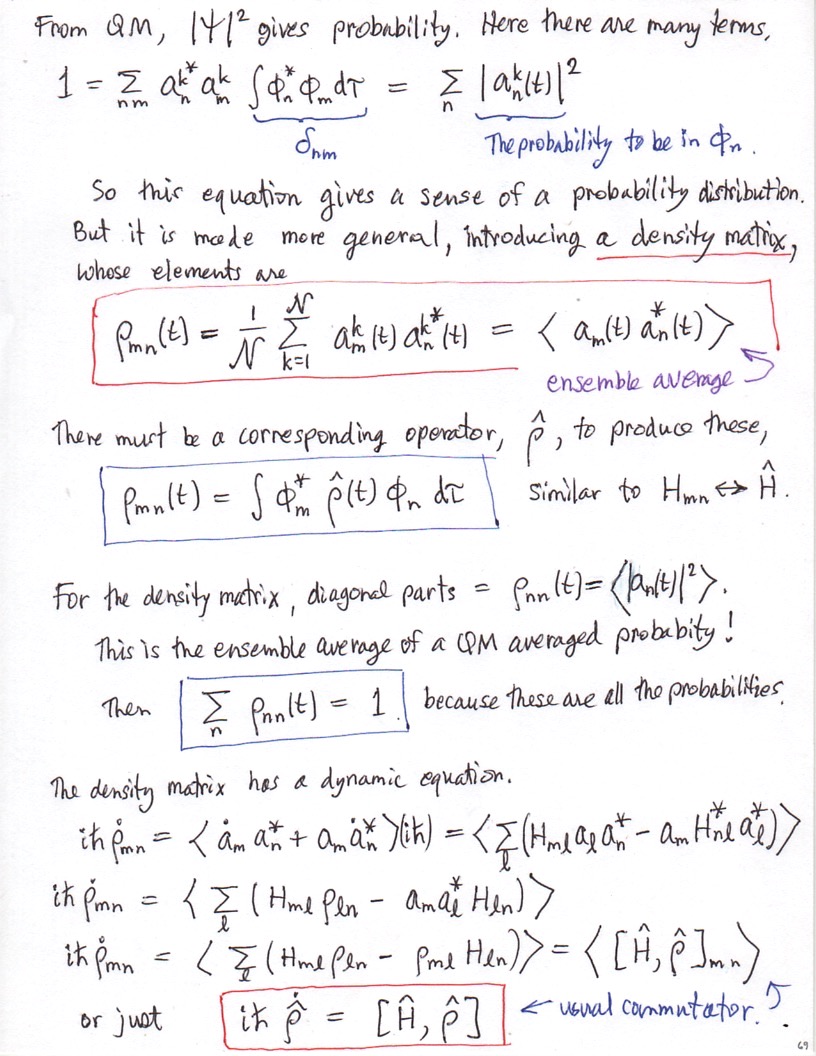 From QM, |Ψ|² gives probability. Here there are many terms,
1 = Σ_{nm} a_n^{k*} a_m^k ∫ϕ_n^* ϕ_m dτ = Σ_n |a_n^k(t)|²
δ_{nm} The probability to be in ϕ_n.
So this equation gives a sense of a probability distribution.
But it is made more general, introducing a density matrix,
whose elements are
ρ_{mn}(t) = 1/𝒩 Σ_{k=1}^{𝒩} a_m^k(t) a_n^{k*}(t) = ⟨ a_m(t) a_n^*(t) ⟩
ensemble average
There must be a corresponding operator, ρ̂, to produce these,
ρ_{mn}(t) = ∫ ϕ_m^* ρ̂(t) ϕ_n dτ similar to H_{mn} ↔ Ĥ.
For the density matrix, diagonal parts = ρ_{nn}(t) = ⟨|a_n(t)|²⟩.
This is the ensemble average of a QM averaged probabity!
Then Σ_n ρ_{nn}(t) = 1. because these are all the probabilities.
The density matrix has a dynamic equation.
iħ ρ̇_{mn} = ⟨ ȧ_m a_n^* + a_m ȧ_n^* ⟩(iħ) = ⟨ Σ_ℓ (H_{mℓ} a_ℓ a_n^* - a_m H_{nℓ}^* a_ℓ^*) ⟩
iħ ρ̇_{mn} = ⟨ Σ_ℓ ( H_{mℓ} ρ_{ℓn} - a_m a_ℓ^* H_{ℓn} ) ⟩
iħ ρ̇_{mn} = ⟨ Σ_ℓ (H_{mℓ} ρ_{ℓn} - ρ_{mℓ} H_{ℓn}) ⟩ = ⟨ [Ĥ, ρ̂]_{mn} ⟩
or just iħ ρ̂̇ = [Ĥ, ρ̂] ← usual commutator.
69